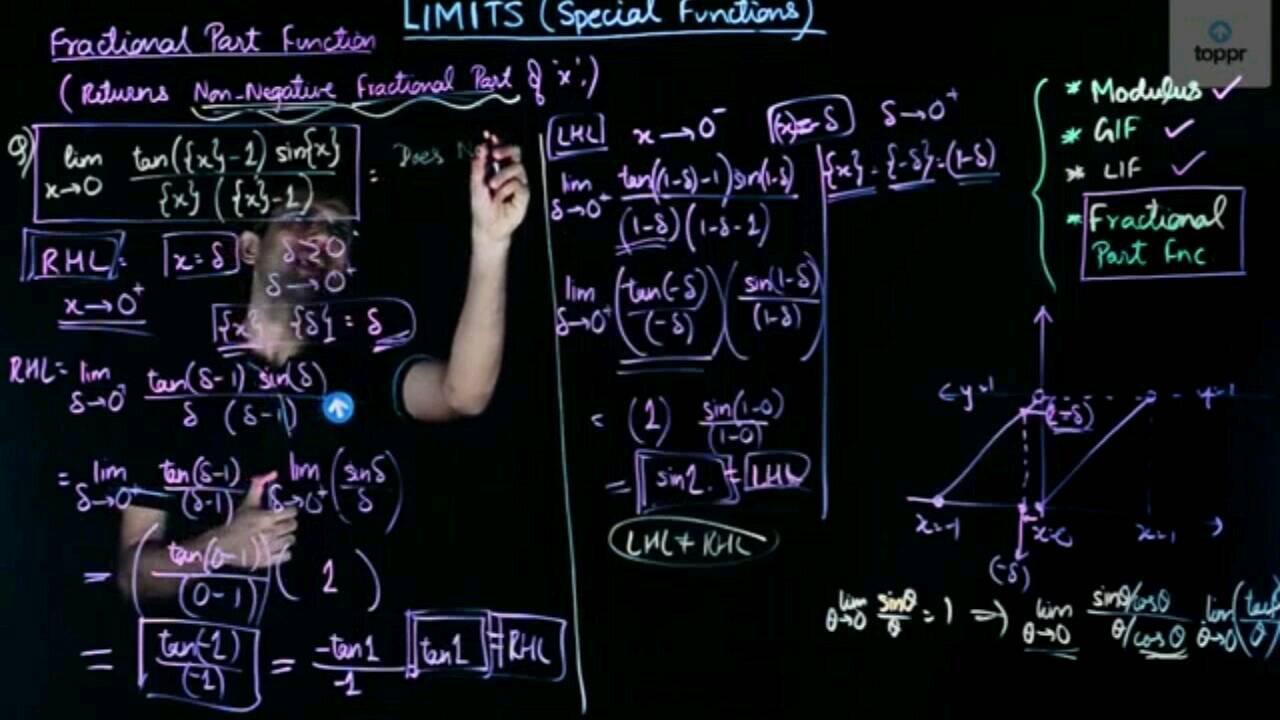 LIMITS (Special Functions)
toppr
Fractional Part Function
(Returns Non-Negative Fractional Part of 'x'.)
Q) lim x→0 tan({x}-1) sin{x} / {x} ({x}-1) = Does No
RHL = x = δ
δ → 0⁺
x → 0⁺
{x} {δ} = δ
RHL = lim δ→0⁺ tan(δ-1) sin(δ) / δ (δ-1)
= lim δ→0⁺ tan(δ-1) / (δ-1) lim δ→0⁺ (sinδ / δ)
= (tan(0-1) / (0-1)) (1)
= tan(-1) / (-1) = -tan1 / -1 tan1 = RHL
LHL x → 0⁻ δ → 0⁺
{x} = {-δ} = (1-δ)
lim δ→0⁺ tan((1-δ)-1) sin(1-δ) / (1-δ) (1-δ-1)
lim δ→0⁺ (tan(-δ) / (-δ)) (sin(1-δ) / (1-δ))
= (1) sin(1-0) / (1-0)
= sin1. = LHL
LHL ≠ RHL
* Modulus ✓
* GIF ✓
* LIF ✓
* Fractional
Part Fnc
y=1
(1-δ)
x=-1
x=0
x=1
(-δ)
lim θ→0 sinθ / θ = 1 ⇒ lim θ→0 sinθ/cosθ / θ/cosθ lim θ→0 (tanθ / θ)